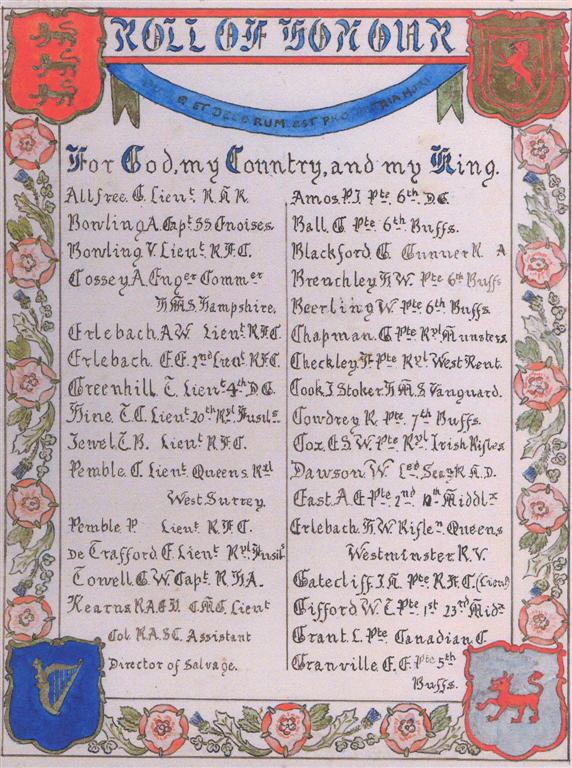 ROLL OF HONOUR
DULCE ET DECORUM EST PRO PATRIA MORI
For God, my Country, and my King.
Allfree. G. Lieut. R.N.R.
Bowling A. Capt SS Gnoises.
Bowling V. Lieut. R.F.C.
Cossey A. Enger Commer
H.M.S. Hampshire.
Erlebach. A.W. Lieut R.F.C.
Erlebach. E.E. 2nd Lieut R.F.C.
Greenhill. T. Lieut 4th D.G.
Hine. T.C. Lieut 20th Ryl Fusils
Jewel. T.B. Lieut R.F.C.
Pemble C. Lieut. Queens Ryl
West Surrey.
Pemble P. Lieut R.F.C.
De Trafford. E. Lieut Ryl Fusils
Towell. G.W. Capt. R.H.A.
Kearns R.A.E.H. C.M.G. Lieut
Col. R.A.S.C. Assistant
Director of Salvage.
Amos. P.J. Pte 6th D.G.
Ball. G. Pte 6th Buffs.
Blackford. G. Gunner R A
Brenchley H.W. Pte 6th Buffs
Beerling W. Pte 6th Buffs
Chapman. G. Pte Ryl Munsters.
Checkley. F. Pte Ryl West Kent.
Cook J. Stoker H.M.S. Vanguard.
Cowdrey R. Pte. 7th Buffs.
Cox. E.S.W. Pte Ryl Irish Rifles
Dawson W. Led Sea R.N.D.
East A.E. Pte 2nd 10th Middlx
Erlebach. H.W. Riflen Queens
Westminster R.V.
Gatecliff. J.H. Pte R.F.C. (Lieut)
Gifford W.T. Pte 1st 23rd Midx
Grant. L. Pte. Canadian C
Granville. E.E. Pte 5th
Buffs.